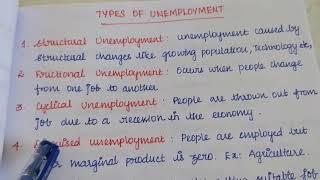 TYPES OF UNEMPLOYMENT
1. Structural Unemployment : unemployment caused by
structural changes like growing population, Technology etc,
2. Frictional Unemployment : occurs when people change
from one job to another
3. Cyclical Unemployment : People are thrown out from
job due to a recession in the economy.
4. unemployment : People are employed but
marginal product is zero. Ex: Agriculture.
suitable job